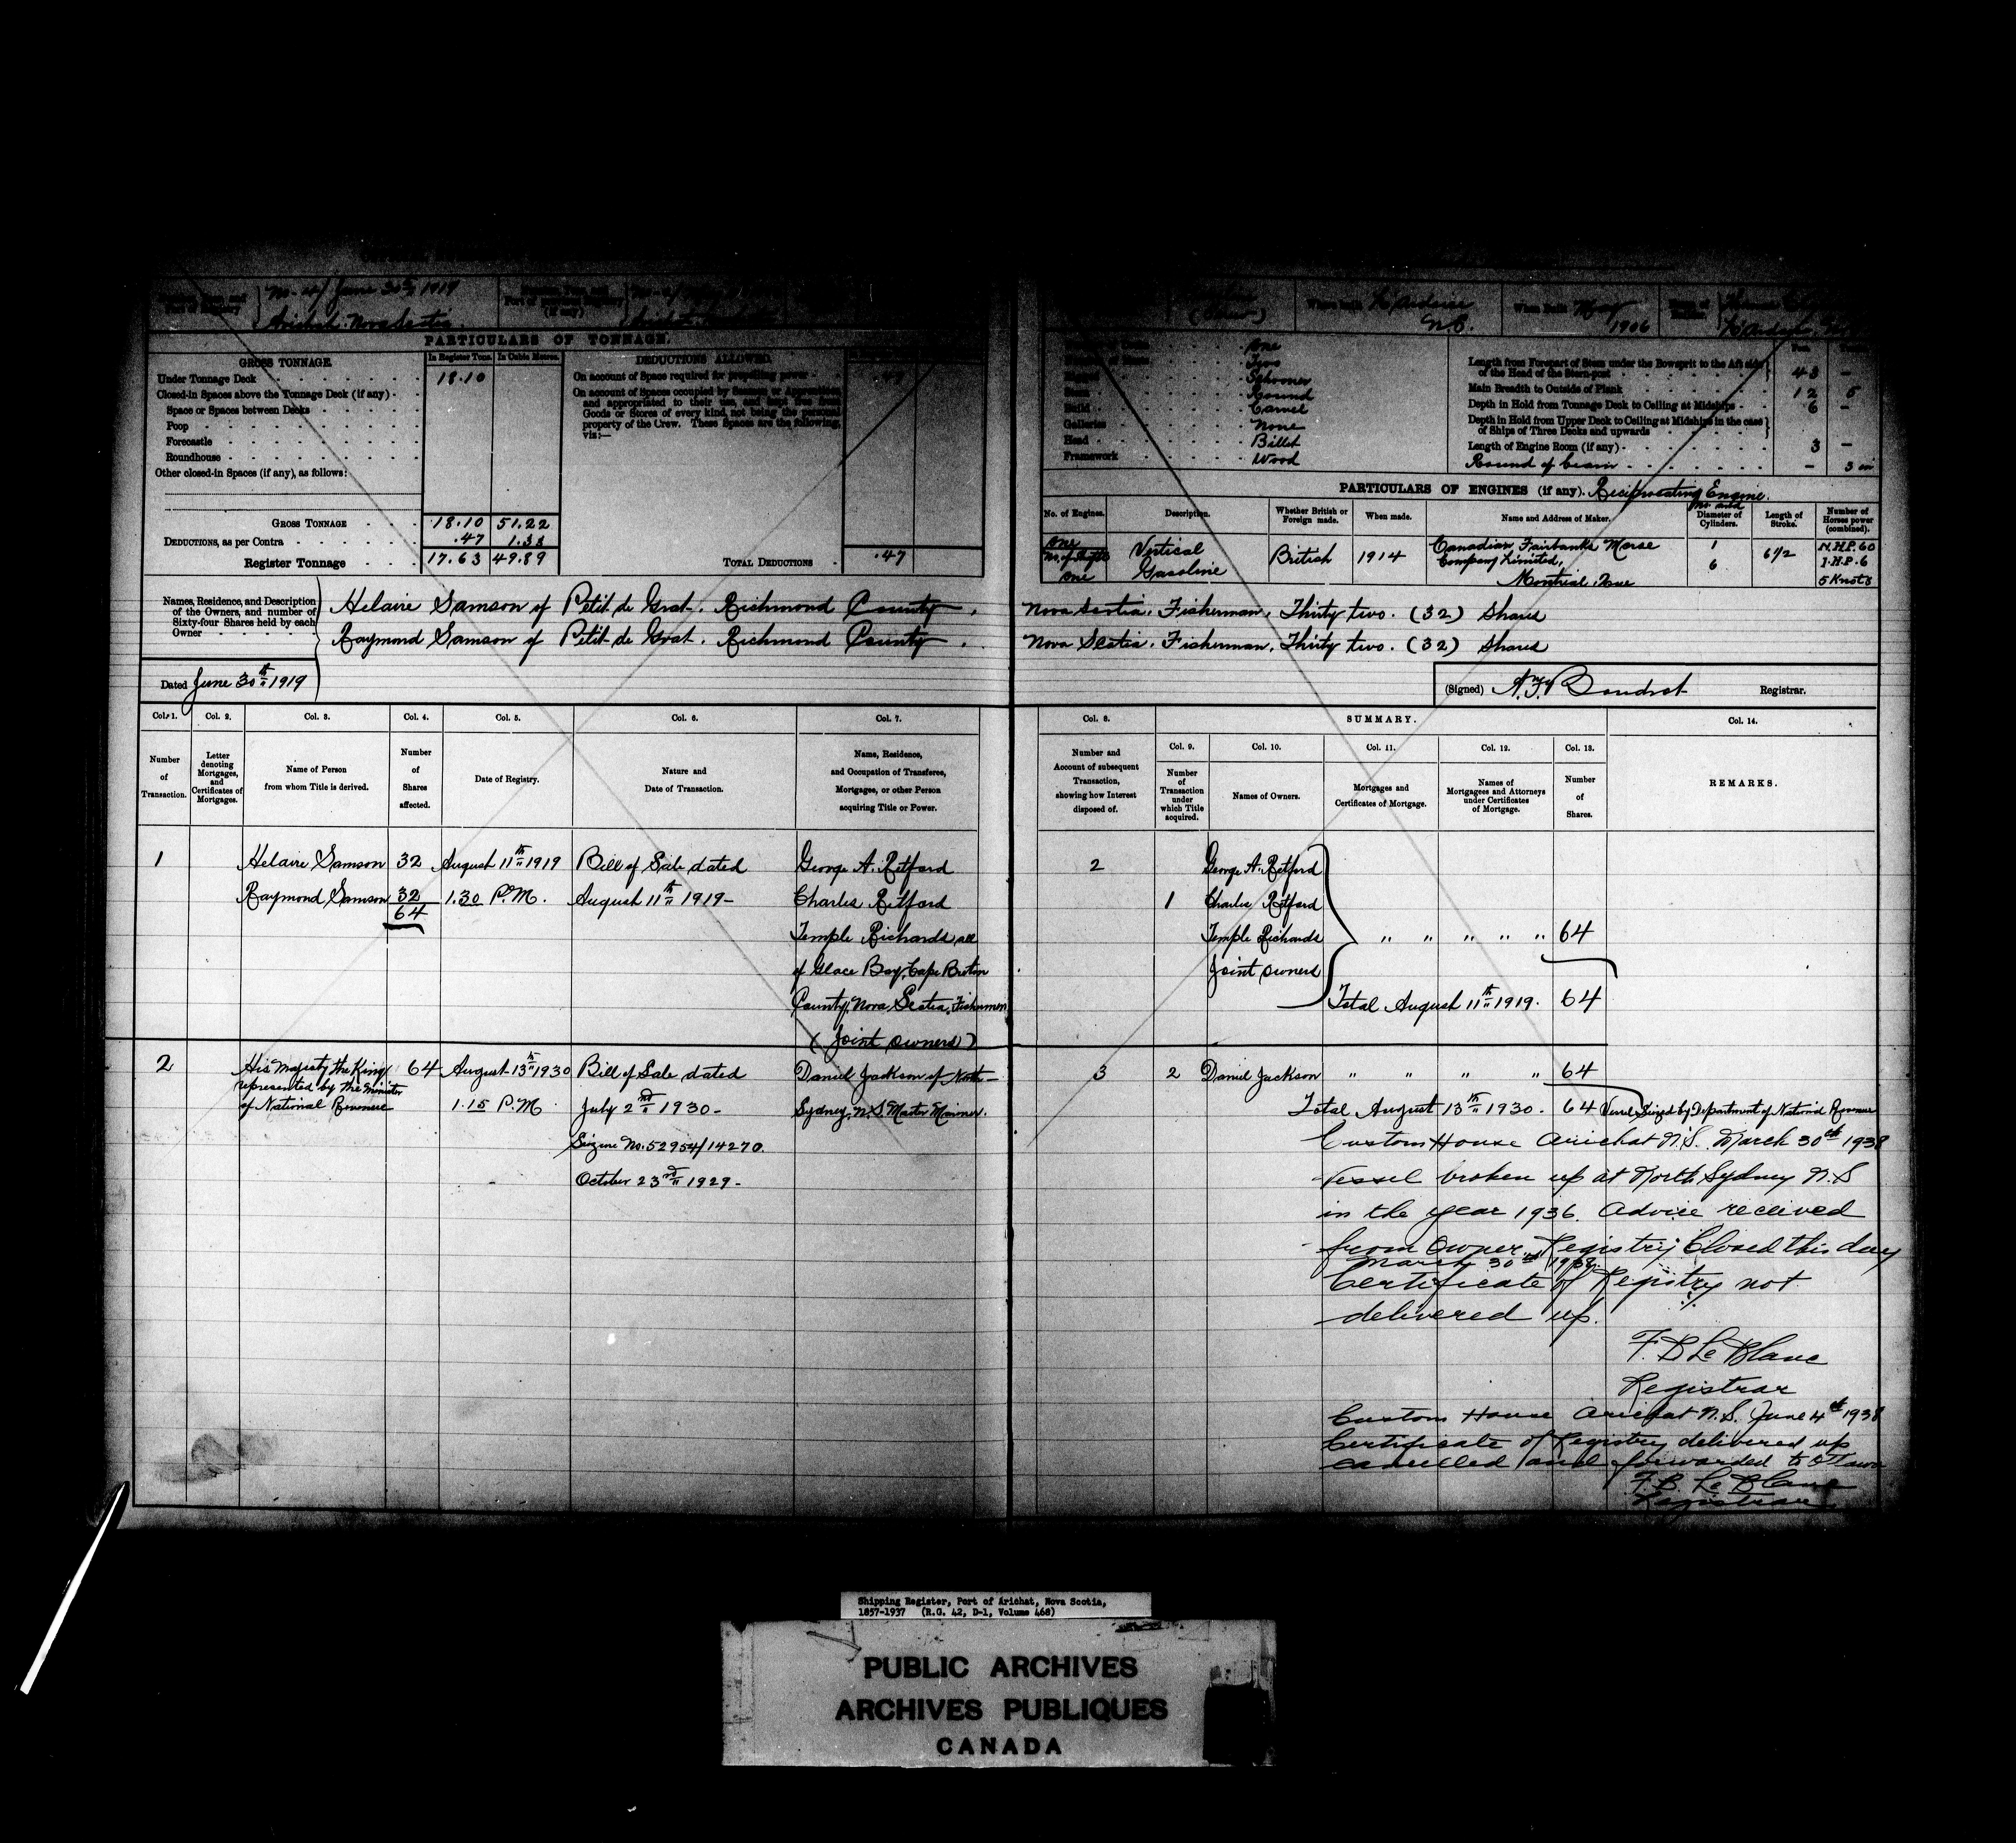 No. 4/ June 30th 1919
Port of Registry
Arichat. Nova Scotia.
(if any)
Where built
N.B.
When built May
1906
PARTICULARS OF TONNAGE.
GROSS TONNAGE.
In Register Tons. In Cubic Metres.
DEDUCTIONS ALLOWED.
Under Tonnage Deck 18.10
Closed-in Spaces above the Tonnage Deck (if any)
Space or Spaces between Decks
Poop
Forecastle
Roundhouse
Other closed-in Spaces (if any), as follows:
GROSS TONNAGE 18.10 51.22
DEDUCTIONS, as per Contra .47 1.33
Register Tonnage 17.63 49.89
On account of Space required for propelling power .47
On account of Spaces occupied by Seamen or Apprentices
and appropriated to their use, and kept free from
Goods or Stores of every kind, not being the personal
property of the Crew. These Spaces are the following,
viz:—
TOTAL DEDUCTIONS .47
One
Two
Schooner
Round
Build Carvel
Galleries None
Head Billet
Framework Wood
Length from Forepart of Stem under the Bowsprit to the Aft side
of the Head of the Stern-post 43 —
Main Breadth to Outside of Plank 12 5
Depth in Hold from Tonnage Deck to Ceiling at Midships 6 —
Depth in Hold from Upper Deck to Ceiling at Midships in the case
of Ships of Three Decks and upwards
Length of Engine Room (if any) 3 —
Round of beam — 3 in
PARTICULARS OF ENGINES (if any). Reciprocating Engine.
No. of Engines. Description. Whether British or Foreign made. When made. Name and Address of Maker. No and Diameter of Cylinders. Length of Stroke. Number of Horses power (combined).
One
No. of Shafts
One
Vertical
Gasoline
British 1914
Canadian Fairbanks Morse
Company Limited,
Montreal Que
1
6
6 1/2
N.H.P. 60
I.H.P. 6
5 Knots
Names, Residence, and Description
of the Owners, and number of
Sixty-four Shares held by each
Owner
Helaire Samson of Petit de Grat. Richmond County. Nova Scotia. Fisherman. Thirty two. (32) Shares
Raymond Samson of Petit de Grat. Richmond County. Nova Scotia. Fisherman. Thirty two. (32) Shares
Dated June 30th 1919
(Signed) Registrar.
Col. 1. Col. 2. Col. 3. Col. 4. Col. 5. Col. 6. Col. 7. Col. 8. SUMMARY. Col. 14.
Col. 9. Col. 10. Col. 11. Col. 12. Col. 13.
Number of Transaction.
Letter denoting Mortgages, and Certificates of Mortgages.
Name of Person from whom Title is derived.
Number of Shares affected.
Date of Registry.
Nature and Date of Transaction.
Name, Residence, and Occupation of Transferee, Mortgages, or other Person acquiring Title or Power.
Number and Account of subsequent Transaction, showing how Interest disposed of.
Number of Transaction under which Title acquired.
Names of Owners.
Mortgages and Certificates of Mortgage.
Names of Mortgagees and Attorneys under Certificates of Mortgage.
Number of Shares.
REMARKS.
1 Helaire Samson 32 August 11th 1919 Bill of Sale dated George A. Retford 2 George A. Retford
Raymond Samson 32 1.30 P.M. August 11th 1919— Charles Retford 1 Charles Retford
64
Temple Richards all Temple Richards " " " " " 64
of Glace Bay, Cape Breton Joint owners
County, Nova Scotia, Fishermen Total August 11th 1919. 64
(Joint owners)
2 His Majesty the King 64 August 13th 1930 Bill of Sale dated Daniel Jackson of North 3 2 Daniel Jackson " " " " 64
represented by the Minister
of National Revenue 1.15 P.M July 2nd 1930— Sydney, N.S Master Mariner. Total August 13th 1930. 64 Vessel Seized by Department of National Revenue
Seizure No. 52954/14270.
October 23rd 1929—
Custom House Arichat N.S. March 30th 1938
Vessel broken up at North Sydney N.S
in the year 1936. Advice received
from Owner. Registry Closed this day
March 30th 1938.
Certificate of Registry not
delivered up.
F. B Le Blanc
Registrar
Custom House Arichat N.S. June 4th 1938
Certificate of Registry delivered up
cancelled and forwarded to Ottawa
F. B. Le Blanc
Registrar
Shipping Register, Port of Arichat, Nova Scotia,
1857-1937 (R.G. 42, D-1, Volume 468)
PUBLIC ARCHIVES
ARCHIVES PUBLIQUES
CANADA